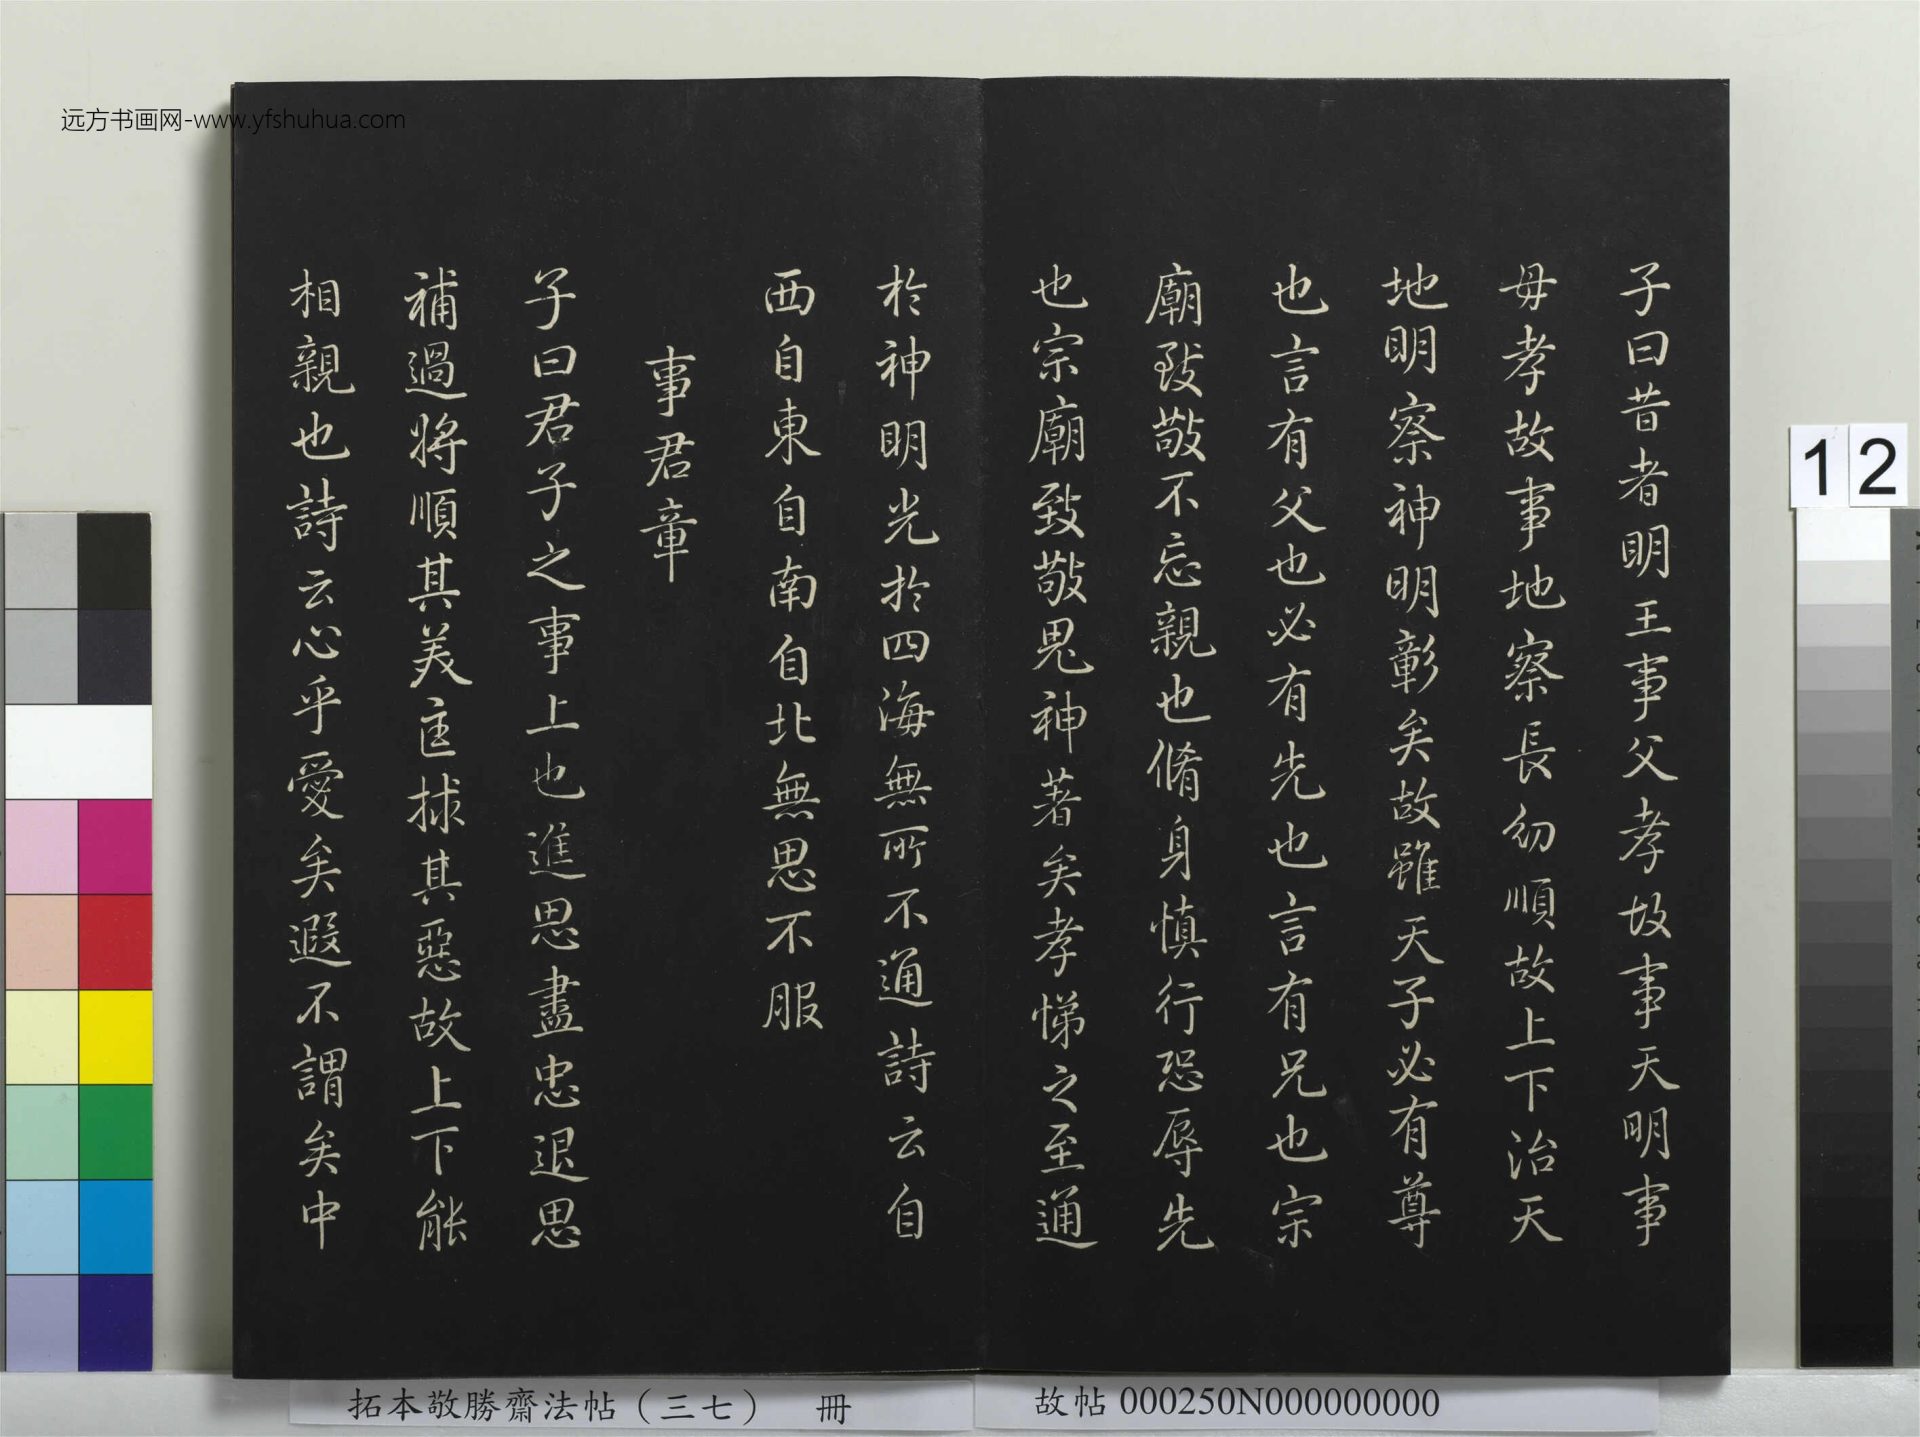 远方书画网-www.yfshuhua.com
子曰昔者明王事父孝故事天明事
母孝故事地察長幼順故上下治天
地明察神明彰矣故雖天子必有尊
也言有父也必有先也言有兄也宗
廟致敬不忘親也脩身慎行恐辱先
也宗廟致敬鬼神著矣孝悌之至通
於神明光於四海無所不通詩云自
西自東自南自北無思不服
事君章
子曰君子之事上也進思盡忠退思
補過將順其美匡捄其惡故上下能
相親也詩云心乎愛矣遐不謂矣中
12
拓本敬勝齋法帖（三七） 冊
故帖 000250N000000000